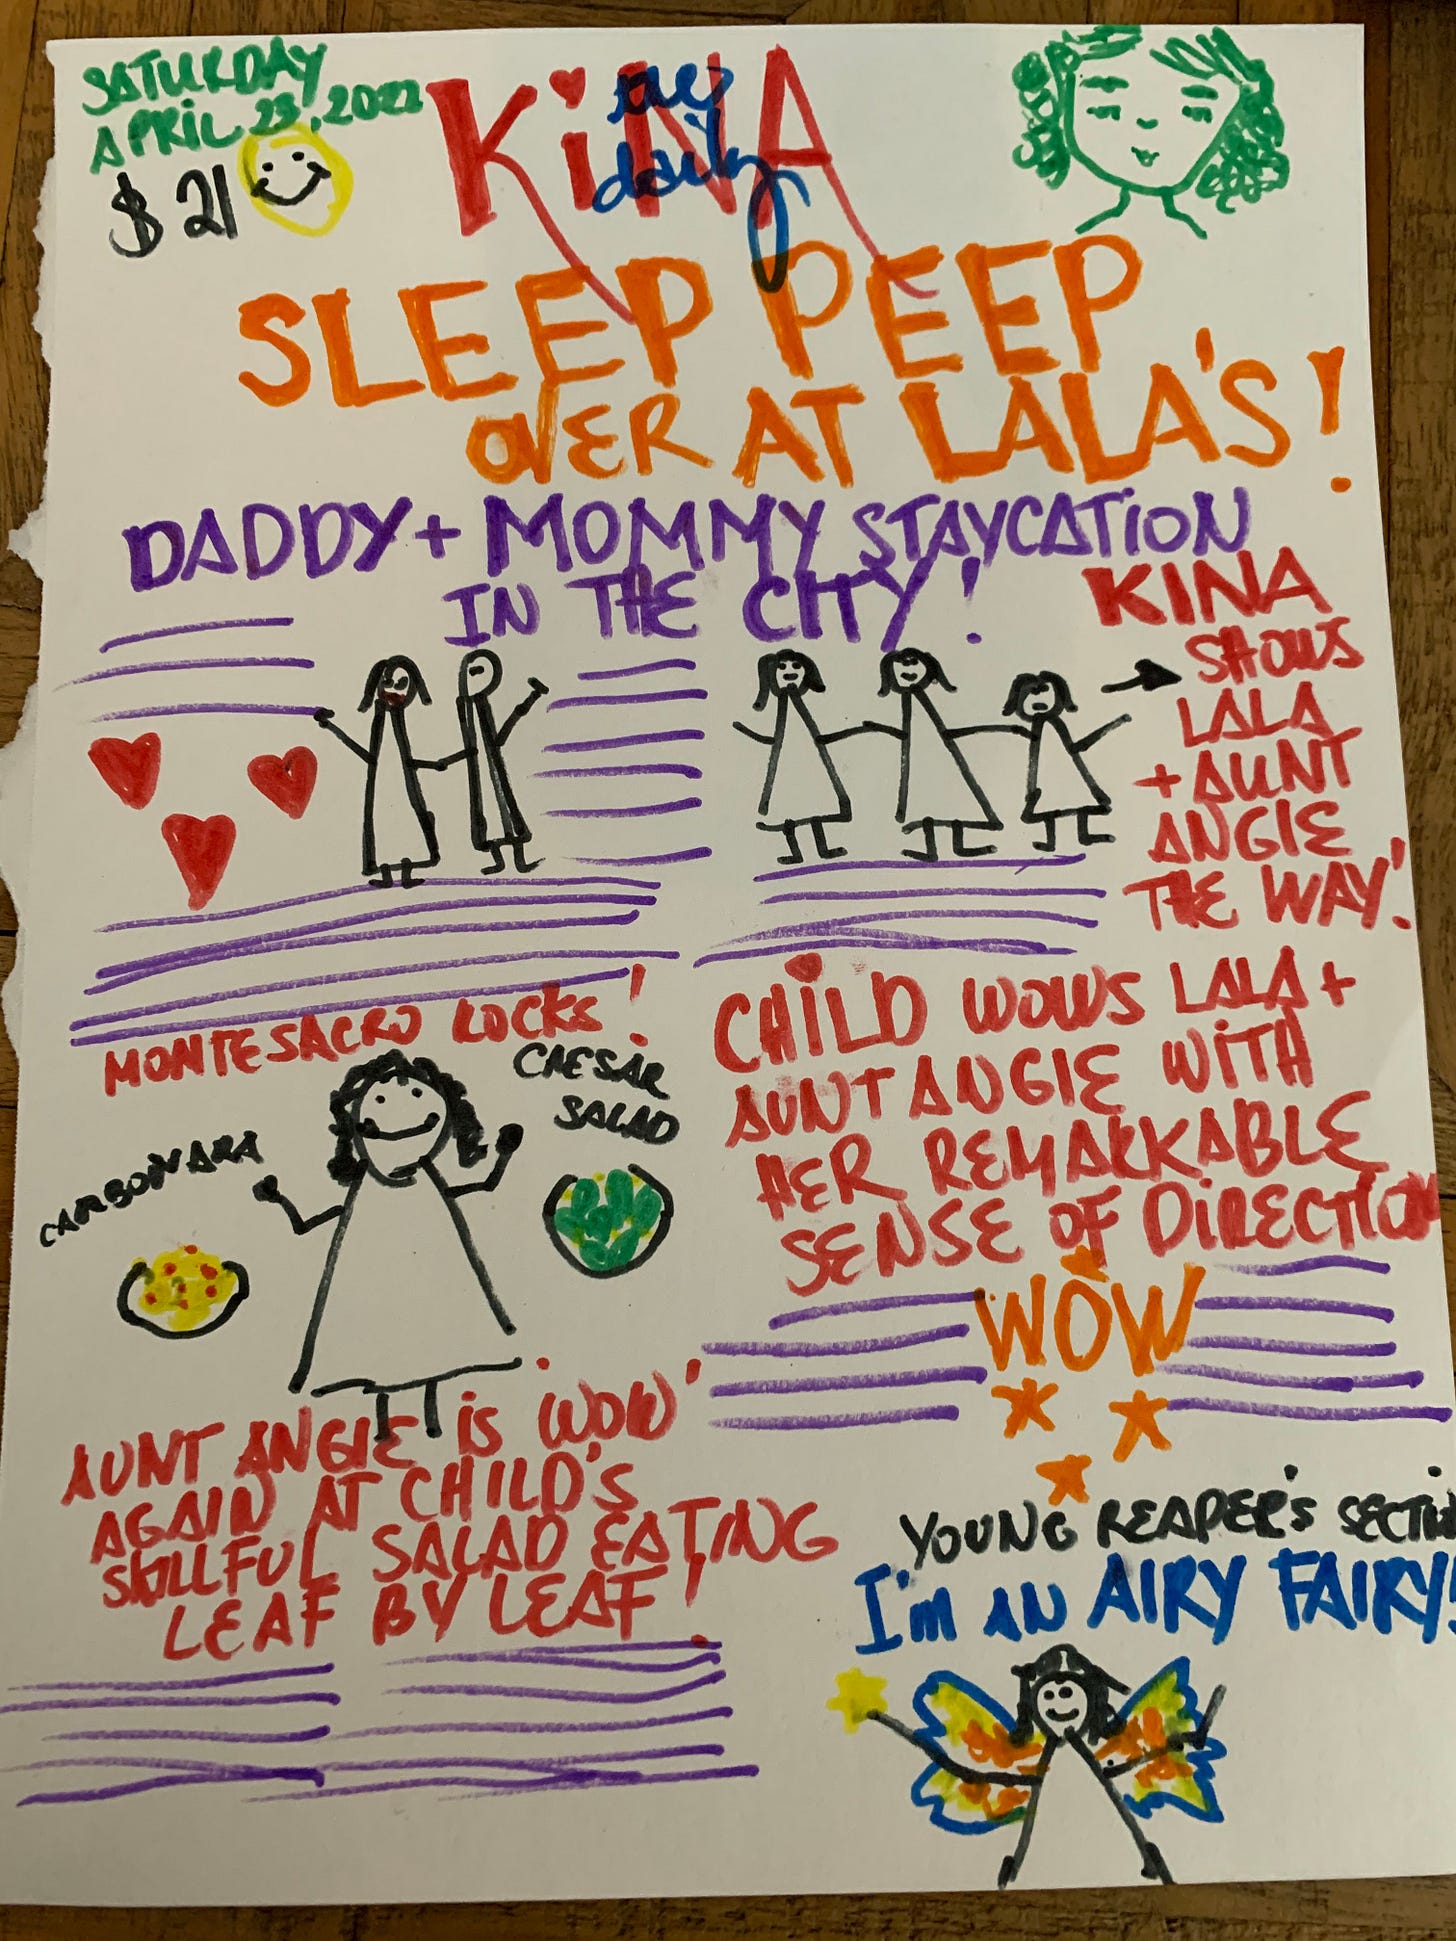 SATURDAY
APRIL 23, 2022
$21
KiNA
daily
SLEEP PEEP
OVER AT LALA'S!
DADDY + MOMMY STAYCATiON
IN THE CITY!
KINA
SHOWS
LALA
+ AUNT
ANGIE
THE WAY!
MONTESACRO ROCKS!
CAESAR
SALAD
CARBONARA
CHiLD WOWS LALA +
AUNT ANGIE WiTH
HER REMARKABLE
SENSE OF DiRECTION
WOW
AUNT ANGIE iS WOW'
AGAIN AT CHILD'S
SKILLFUL SALAD EATING
LEAF BY LEAF!
YOUNG REAPER'S SECTiON
I'm AN AIRY FAIRY!